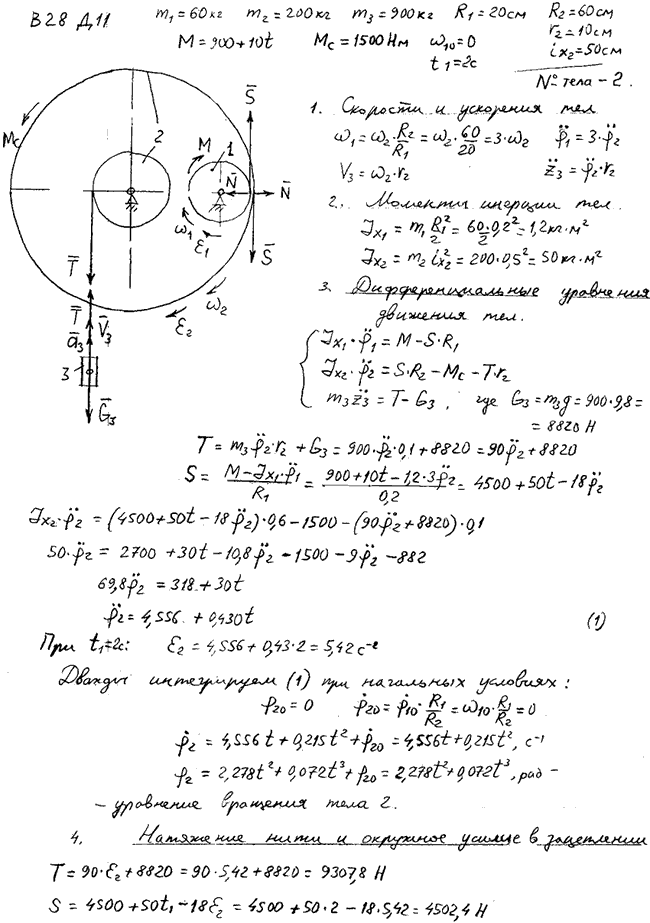 В28 Д.11 m₁=60кг m₂=200кг m₃=900кг R₁=20см R₂=60см
r₂=10см
M=900+10t Mc=1500Нм ω₁₀=0 iₓ₂=50см
t₁=2с
№ тела - 2.
S̄
Mc
2
M
1
N̄ N̄
ω₁ ε̄₁
S̄
T̄
ω₂
ε̄₂
T̄ V̄₃
ā₃
3
Ḡ₃
1. Скорости и ускорения тел
ω₁=ω₂·R₂/R₁=ω₂·60/20=3·ω₂ φ̈₁=3·φ̈₂
V₃=ω₂·r₂ z̈₃=φ̈₂·r₂
2. Моменты инерции тел.
Jₓ₁=m₁R₁²/2=60/2·0,2²=1,2кг·м²
Jₓ₂=m₂iₓ₂²=200·0,5²=50кг·м²
3. Дифференциальные уравнения
движения тел.
Jₓ₁·φ̈₁=M-S·R₁
Jₓ₂·φ̈₂=S·R₂-Mc-T·r₂
m₃z̈₃=T-G₃, где G₃=m₃g=900·9,8=
=8820 Н
T=m₃φ̈₂·r₂+G₃=900·φ̈₂·0,1+8820=90φ̈₂+8820
S=(M-Jₓ₁·φ̈₁)/R₁=(900+10t-1,2·3φ̈₂)/0,2=4500+50t-18φ̈₂
Jₓ₂·φ̈₂=(4500+50t-18φ̈₂)·0,6-1500-(90φ̈₂+8820)·0,1
50·φ̈₂=2700+30t-10,8φ̈₂-1500-9φ̈₂-882
69,8φ̈₂=318+30t
φ̈₂=4,556+0,430t (1)
При t₁=2с: ε₂=4,556+0,43·2=5,42с⁻²
Дважды интегрируем (1) при начальных условиях:
φ₂₀=0 φ̇₂₀=φ̇₁₀·R₁/R₂=ω₁₀·R₁/R₂=0
φ̇₂=4,556t+0,215t²+φ̇₂₀=4,556t+0,215t², с⁻¹
φ₂=2,278t²+0,072t³+φ₂₀=2,278t²+0,072t³, рад -
- уравнение вращения тела 2.
4. Натяжение нити и окружное усилие в зацеплении
T=90·ε₂+8820=90·5,42+8820=9307,8 Н
S=4500+50t₁-18ε₂=4500+50·2-18·5,42=4502,4 Н